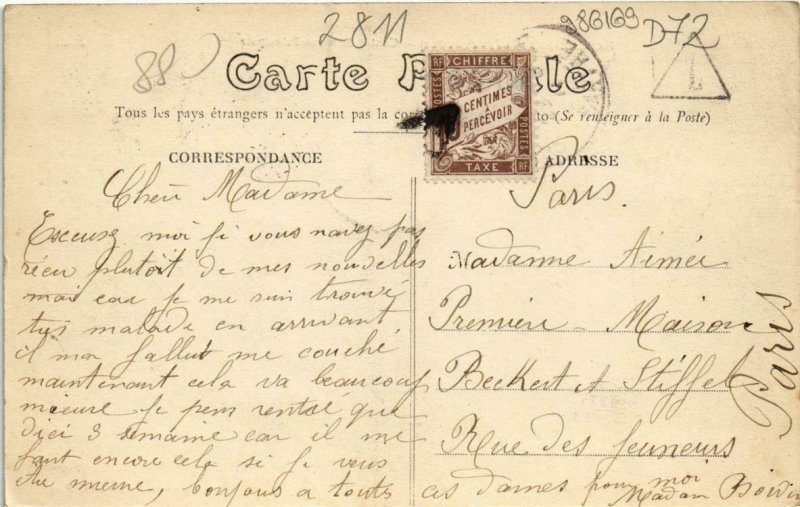 2811
286169
D72
88
Carte P le
RF CHIFFRE RF
CENTIMES
À
PERCEVOIR
POSTES
TAXE RF
T
Tous les pays étrangers n'acceptent pas la cor to (Se renseigner à la Poste)
CORRESPONDANCE
ADRESSE
Cheri Madame
Excuse moi si vous navez pas
récu plutôit de mes nouvelles
moi car je me suis trouvé
très malade en arrivant
il ma fallut me couché
maintenant cela va beaucoup
mieuse je pens rentré que
dici 3 semaine car il me
faut encore cela si je veus
être mieuse, bonjous a touts
ces dames pour moi
Madam Boidin
Paris.
Madanme Aimée
Premiere Maison
Beckert et Stiffel
Rue des Jeuneurs
Paris